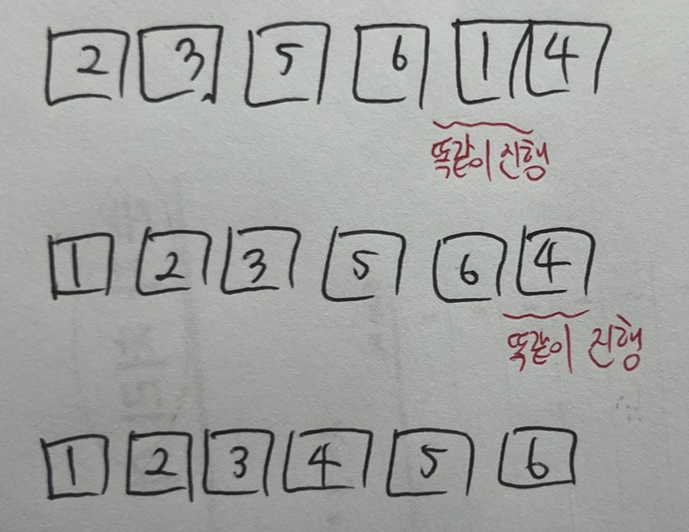 2 3 5 6 1 4
똑같이 진행
1 2 3 5 6 4
똑같이 진행
1 2 3 4 5 6